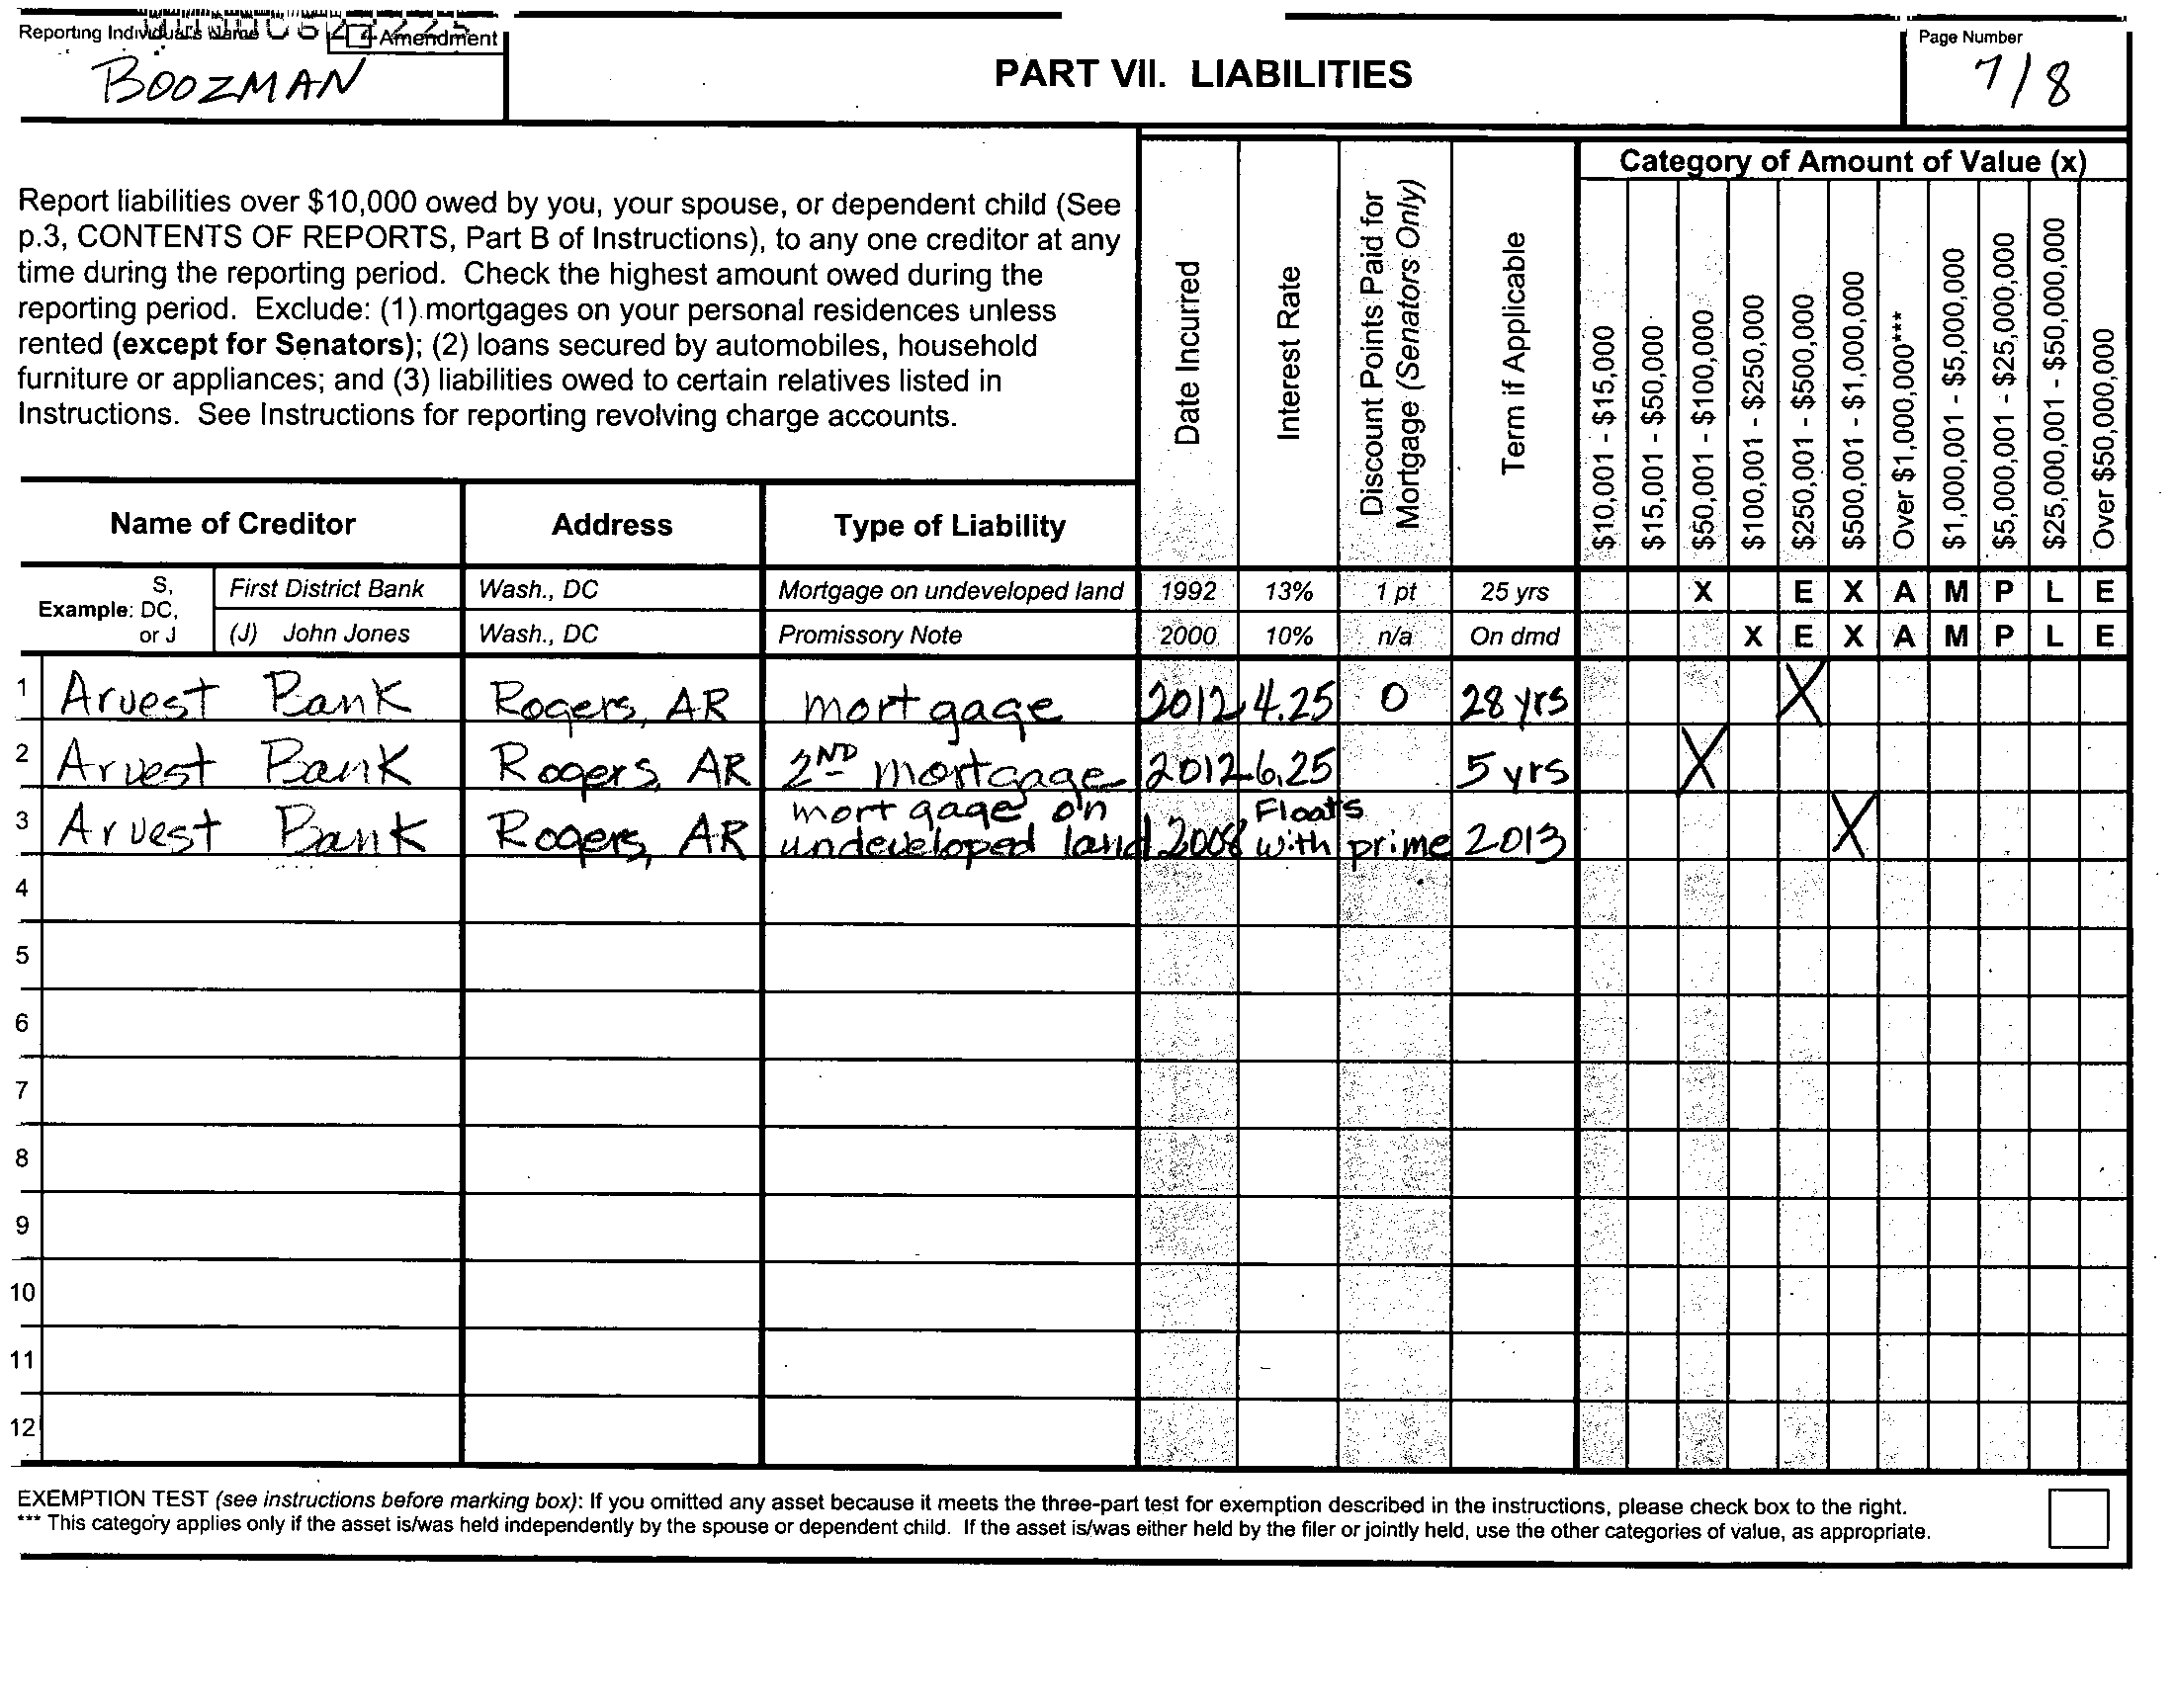 Reporting Individual's Name
Amendment
BOOZMAN
PART VII. LIABILITIES
Page Number
7/8
Report liabilities over $10,000 owed by you, your spouse, or dependent child (See
p.3, CONTENTS OF REPORTS, Part B of Instructions), to any one creditor at any
time during the reporting period. Check the highest amount owed during the
reporting period. Exclude: (1) mortgages on your personal residences unless
rented (except for Senators); (2) loans secured by automobiles, household
furniture or appliances; and (3) liabilities owed to certain relatives listed in
Instructions. See Instructions for reporting revolving charge accounts.
Name of Creditor
Address
Type of Liability
Date Incurred
Interest Rate
Discount Points Paid for
Mortgage (Senators Only)
Term if Applicable
Category of Amount of Value (x)
$10,001 - $15,000
$15,001 - $50,000
$50,001 - $100,000
$100,001 - $250,000
$250,001 - $500,000
$500,001 - $1,000,000
Over $1,000,000***
$1,000,001 - $5,000,000
$5,000,001 - $25,000,000
$25,000,001 - $50,000,000
Over $50,000,000
Example: S,
DC,
or J
First District Bank Wash., DC Mortgage on undeveloped land 1992 13% 1 pt 25 yrs X E X A M P L E
(J) John Jones Wash., DC Promissory Note 2000 10% n/a On dmd X E X A M P L E
1 Arvest Bank Rogers, AR mortgage 2012 4.25 0 28 yrs X
2 Arvest Bank Rogers, AR 2ND mortgage 2012 6.25 5 yrs X
3 Arvest Bank Rogers, AR mortgage on undeveloped land 2008 Floats with prime 2013 X
4
5
6
7
8
9
10
11
12
EXEMPTION TEST (see instructions before marking box): If you omitted any asset because it meets the three-part test for exemption described in the instructions, please check box to the right.
*** This category applies only if the asset is/was held independently by the spouse or dependent child. If the asset is/was either held by the filer or jointly held, use the other categories of value, as appropriate.